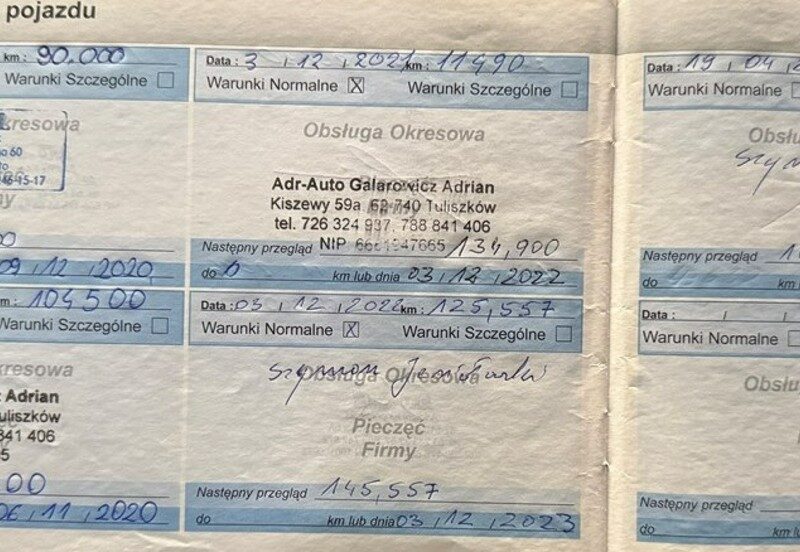 pojazdu
km: 90.000
Warunki Szczególne
kresowa
60
46-15-17
09, 12, 2020
104500
Warunki Szczególne
kresowa
t Adrian
uliszków
841 406
5
00
06, 11, 2020
Data: 3, 12, 2021 km: 11490
Warunki Normalne X Warunki Szczególne
Obsługa Okresowa
Adr-Auto Galarowicz Adrian
Kiszewy 59a, 62-740 Tuliszków
tel. 726 324 937, 788 841 406
Następny przegląd NIP 134,900
do km lub dnia 03, 12, 2022
Data: 03, 12, 2022 km: 125,557
Warunki Normalne X Warunki Szczególne
Szymon
Obsługa Okresowa
Pieczęć
Firmy
Następny przegląd 145,557
do km lub dnia 03, 12, 2023
Data: 19, 04,
Warunki Normalne
Obsłu
Następny przegląd
do km
Data: / /
Warunki Normalne
Obsłu
Następny przegląd
do km lu